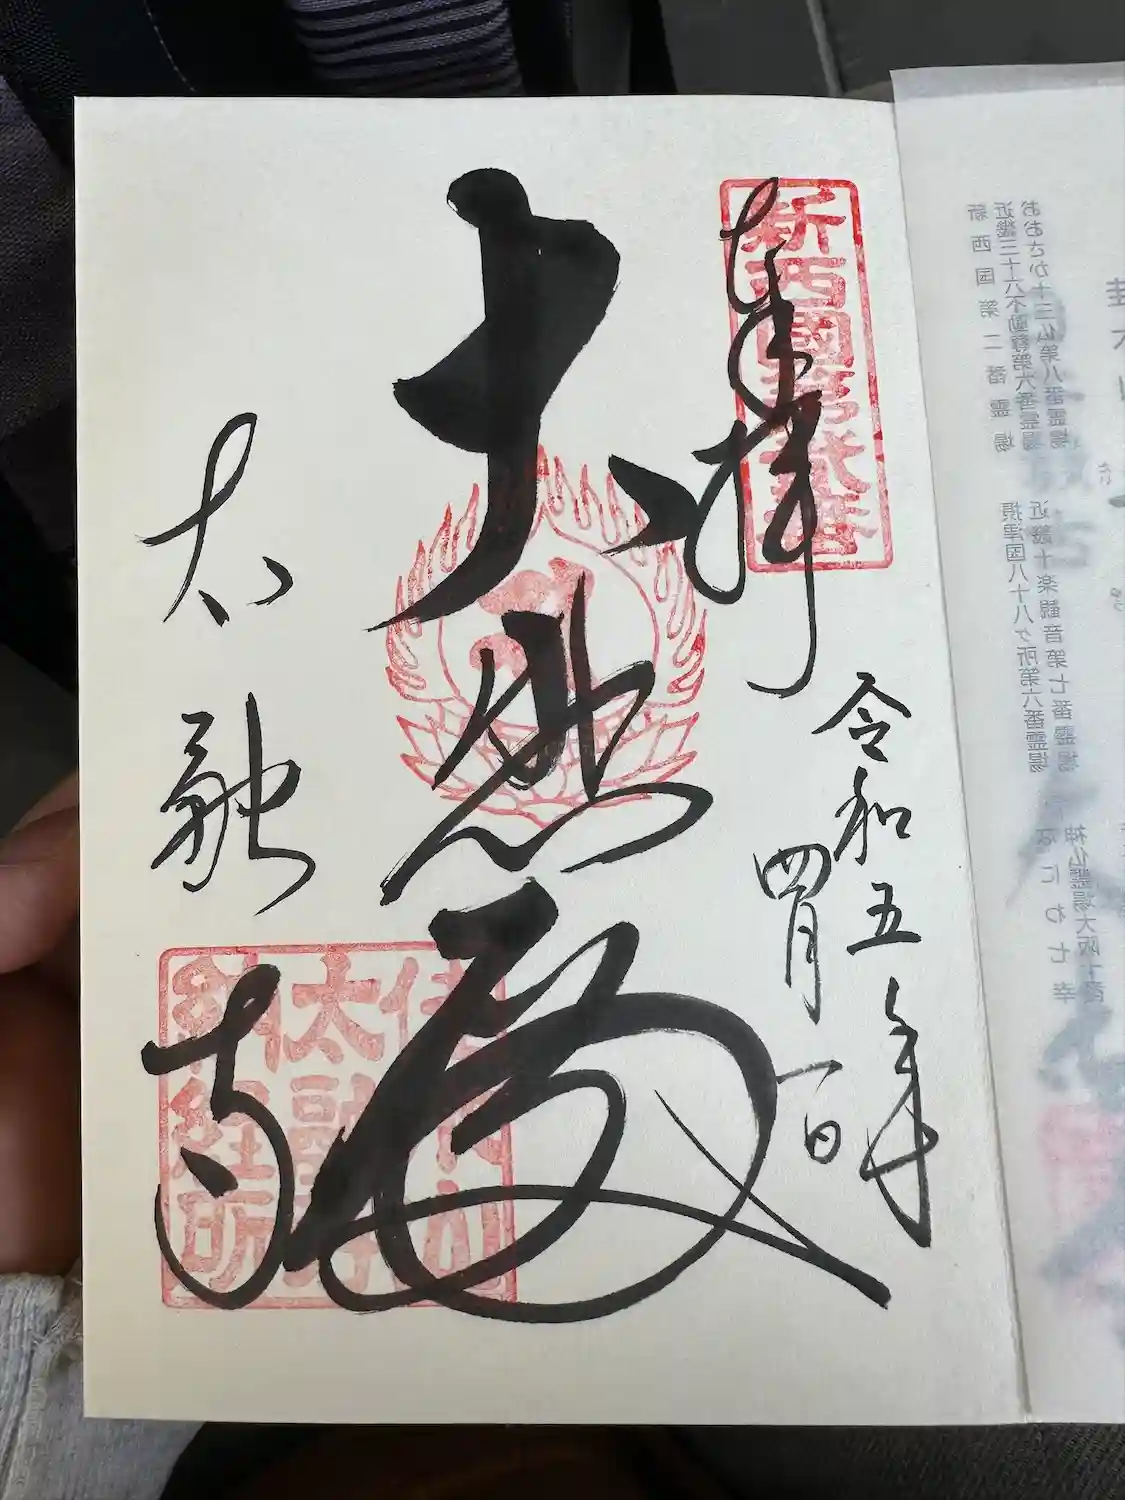 奉拝
新西國第弐番
令和五年
四月一日
大悲殿
太融寺
佳木山
太融寺
納経所
おおさか十三仏第八番霊場
近畿三十六不動尊第六番霊場
新西国第二番霊場
近畿十楽観音第七番霊場
摂津国八十八ヶ所第六番霊場
神仏霊場大阪十番
なにわ七幸